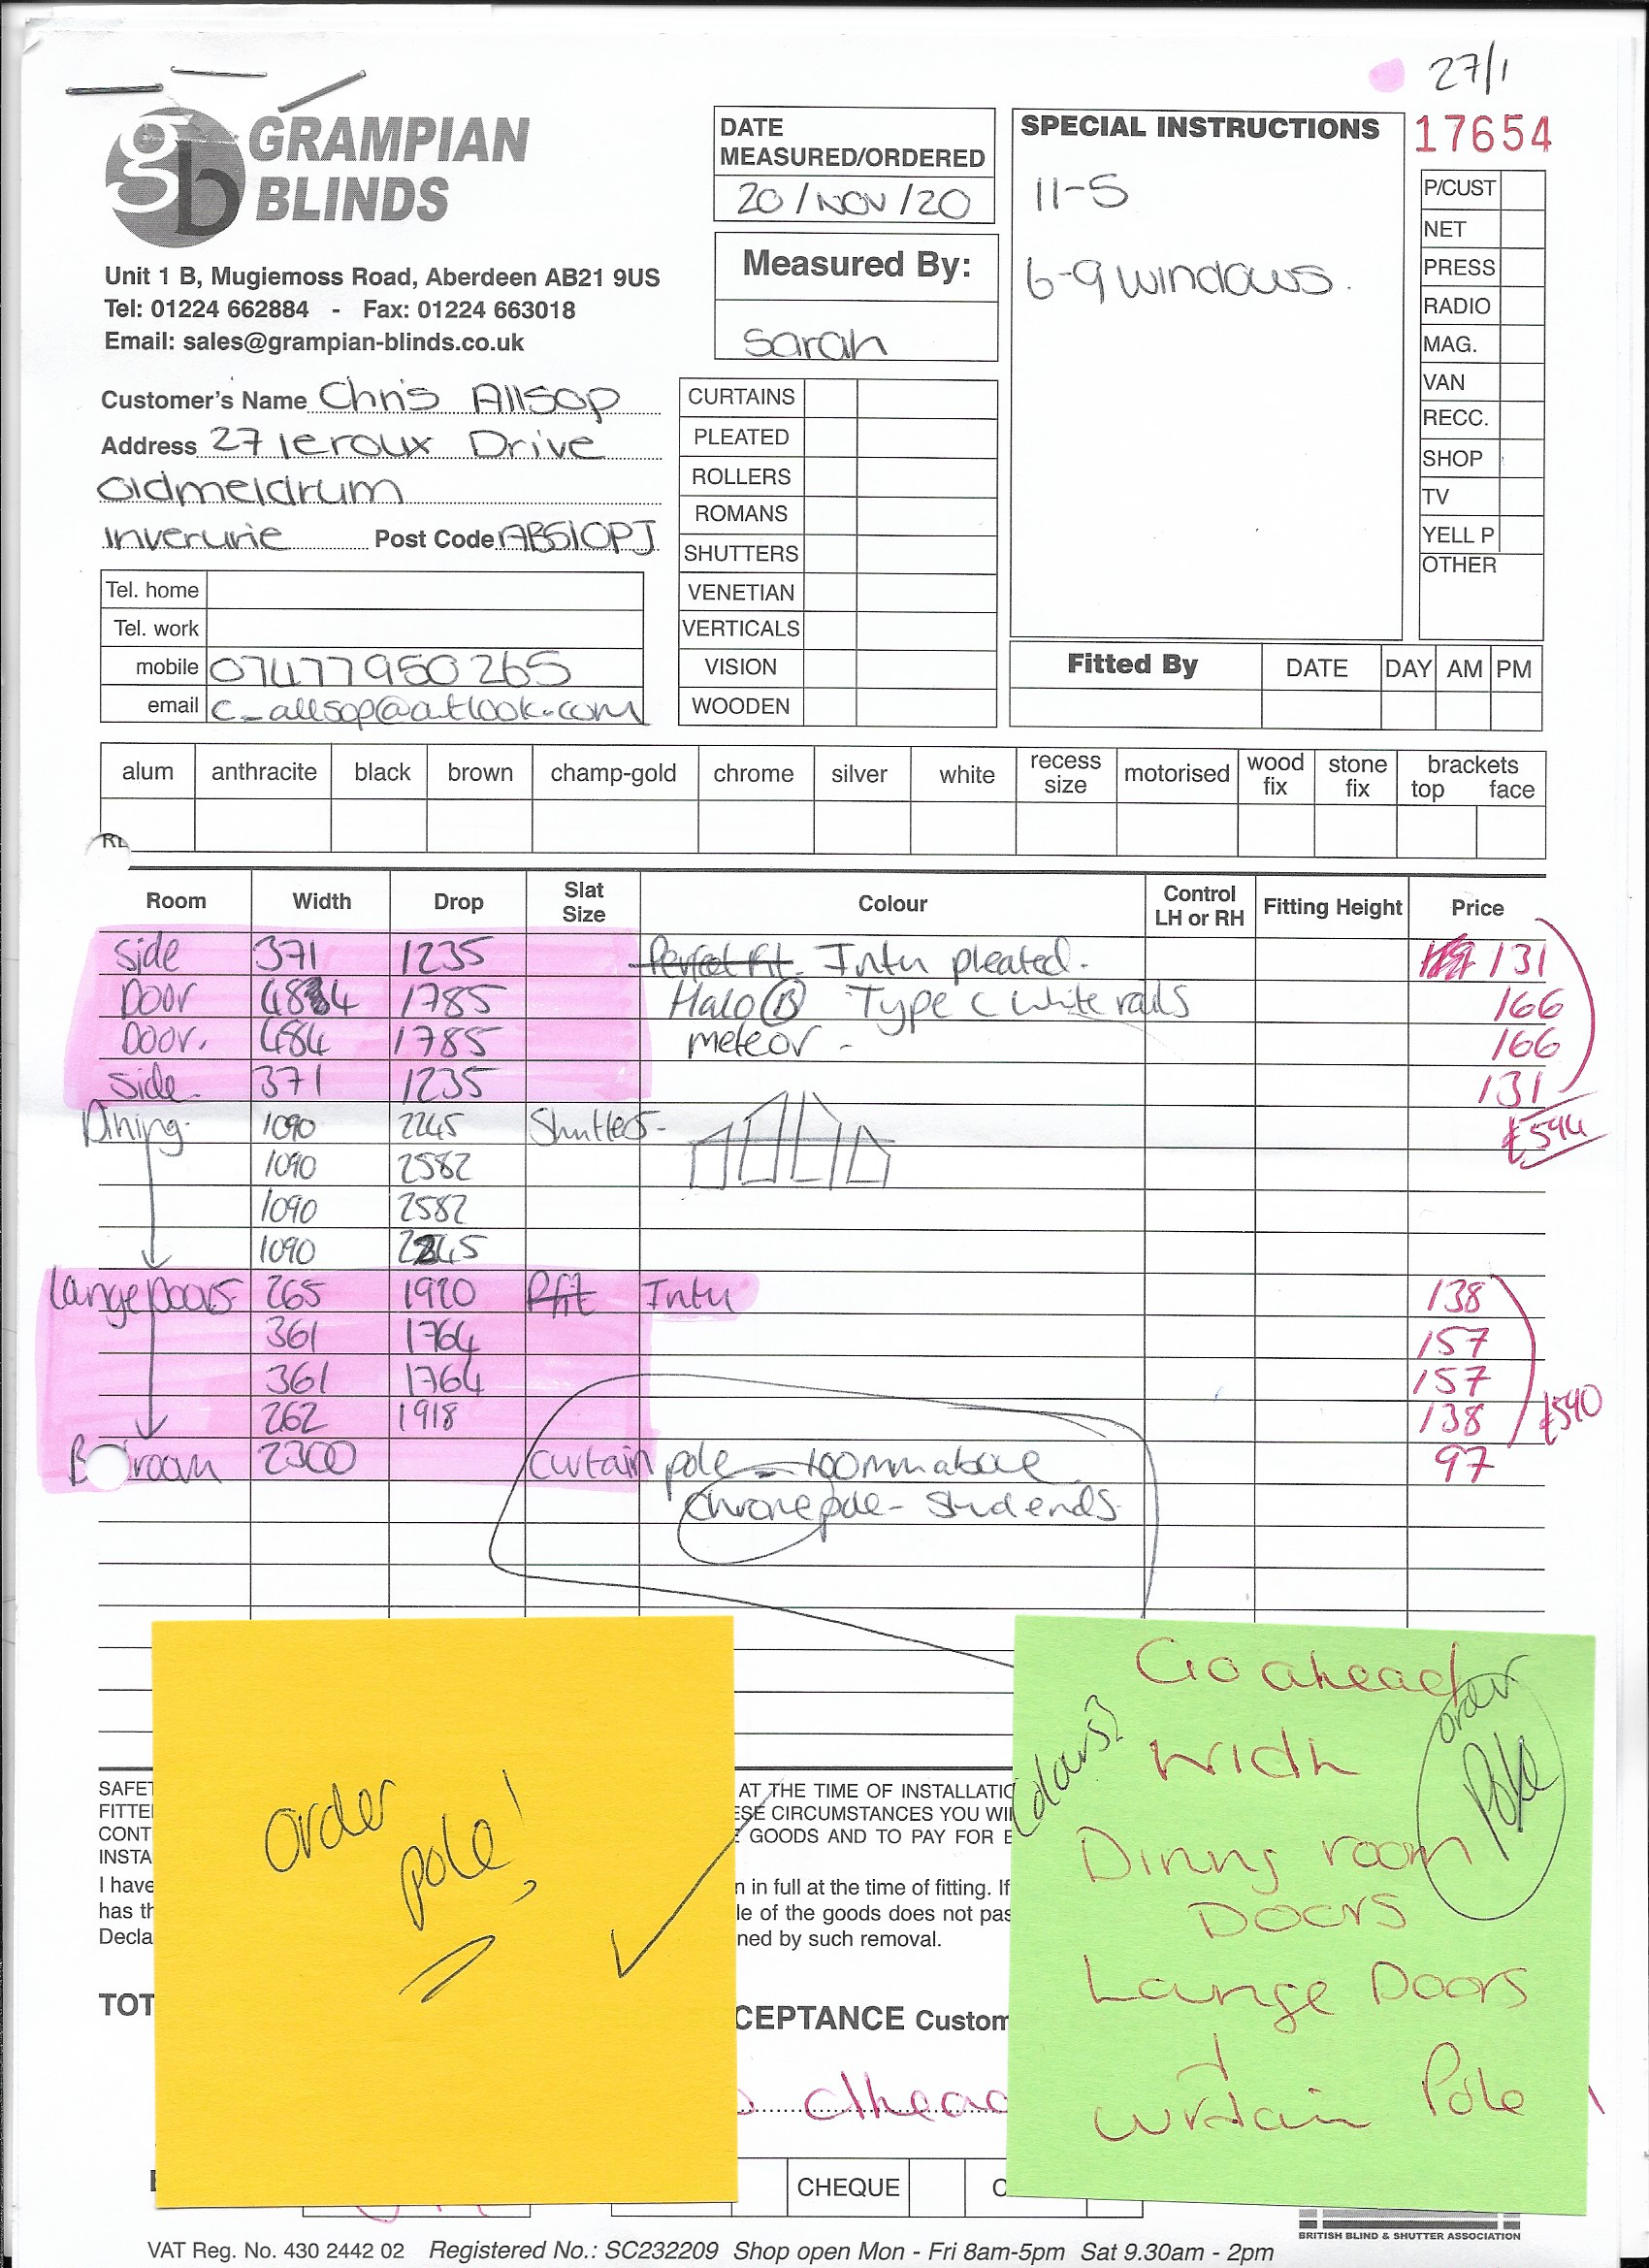 27/1
GRAMPIAN
BLINDS
Unit 1 B, Mugiemoss Road, Aberdeen AB21 9US
Tel: 01224 662884 - Fax: 01224 663018
Email: sales@grampian-blinds.co.uk
DATE
MEASURED/ORDERED
20/NOV/20
Measured By:
Sarah
SPECIAL INSTRUCTIONS
11-5
6-9 windows.
17654
P/CUST
NET
PRESS
RADIO
MAG.
VAN
RECC.
SHOP
TV
YELL P
OTHER
Customer's Name Chris Allsop
Address 27 leroux Drive
oldmeldrum
Inverurie Post Code AB510PJ
Tel. home
Tel. work
mobile 07477950265
email c_allsop@outlook.com
CURTAINS
PLEATED
ROLLERS
ROMANS
SHUTTERS
VENETIAN
VERTICALS
VISION
WOODEN
Fitted By DATE DAY AM PM
alum anthracite black brown champ-gold chrome silver white recess size motorised wood fix stone fix brackets top face
Room Width Drop Slat Size Colour Control LH or RH Fitting Height Price
side 371 1235 Perfect fit. Intu pleated. 131
Door 484 1785 Halo B Type C white rails 166
Door. 484 1785 meteor - 166
side. 371 1235 131
£594
Dining. 1090 2245 Shutters-
1090 2582
1090 2582
1090 2245
Lounge Doors 265 1920 Pfit Intu 138
361 1764 157
361 1764 157
262 1918 138
£590
B room 2300 curtain pole - 100mm above 97
chrome pole - Stud ends.
order
pole!
Go ahead
With
Dining room
Doors
Lounge Doors
+
curtain Pole
colours?
order
Pole
SAFE
FITTE
CONT
INSTA
AT THE TIME OF INSTALLATIO
ESE CIRCUMSTANCES YOU WI
GOODS AND TO PAY FOR
I have
has th
Decla
n in full at the time of fitting. If
le of the goods does not pas
ned by such removal.
TOT
CEPTANCE Custom
ahead
CHEQUE
BRITISH BLIND & SHUTTER ASSOCIATION
VAT Reg. No. 430 2442 02 Registered No.: SC232209 Shop open Mon - Fri 8am-5pm Sat 9.30am - 2pm